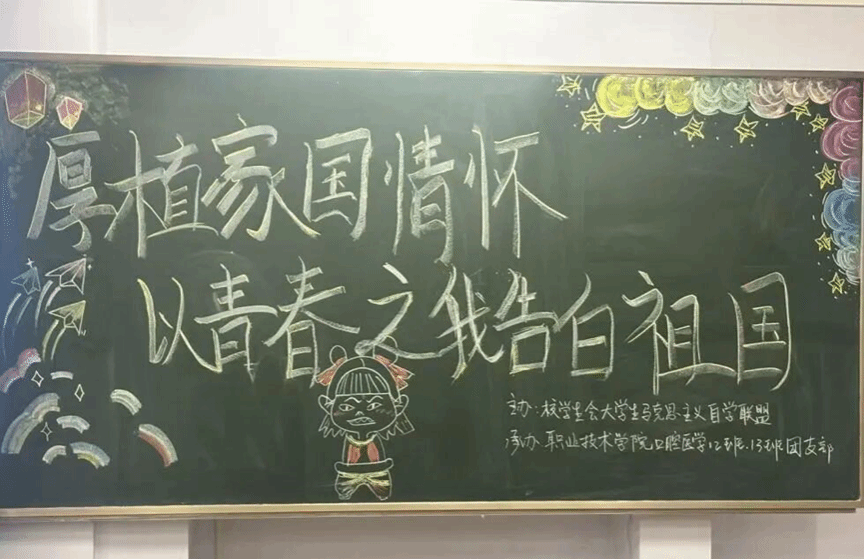 厚植家国情怀
以青春之我告白祖国
主办:校学生会大学生马克思主义自学联盟
承办:职业技术学院口腔医学12班、13班团支部